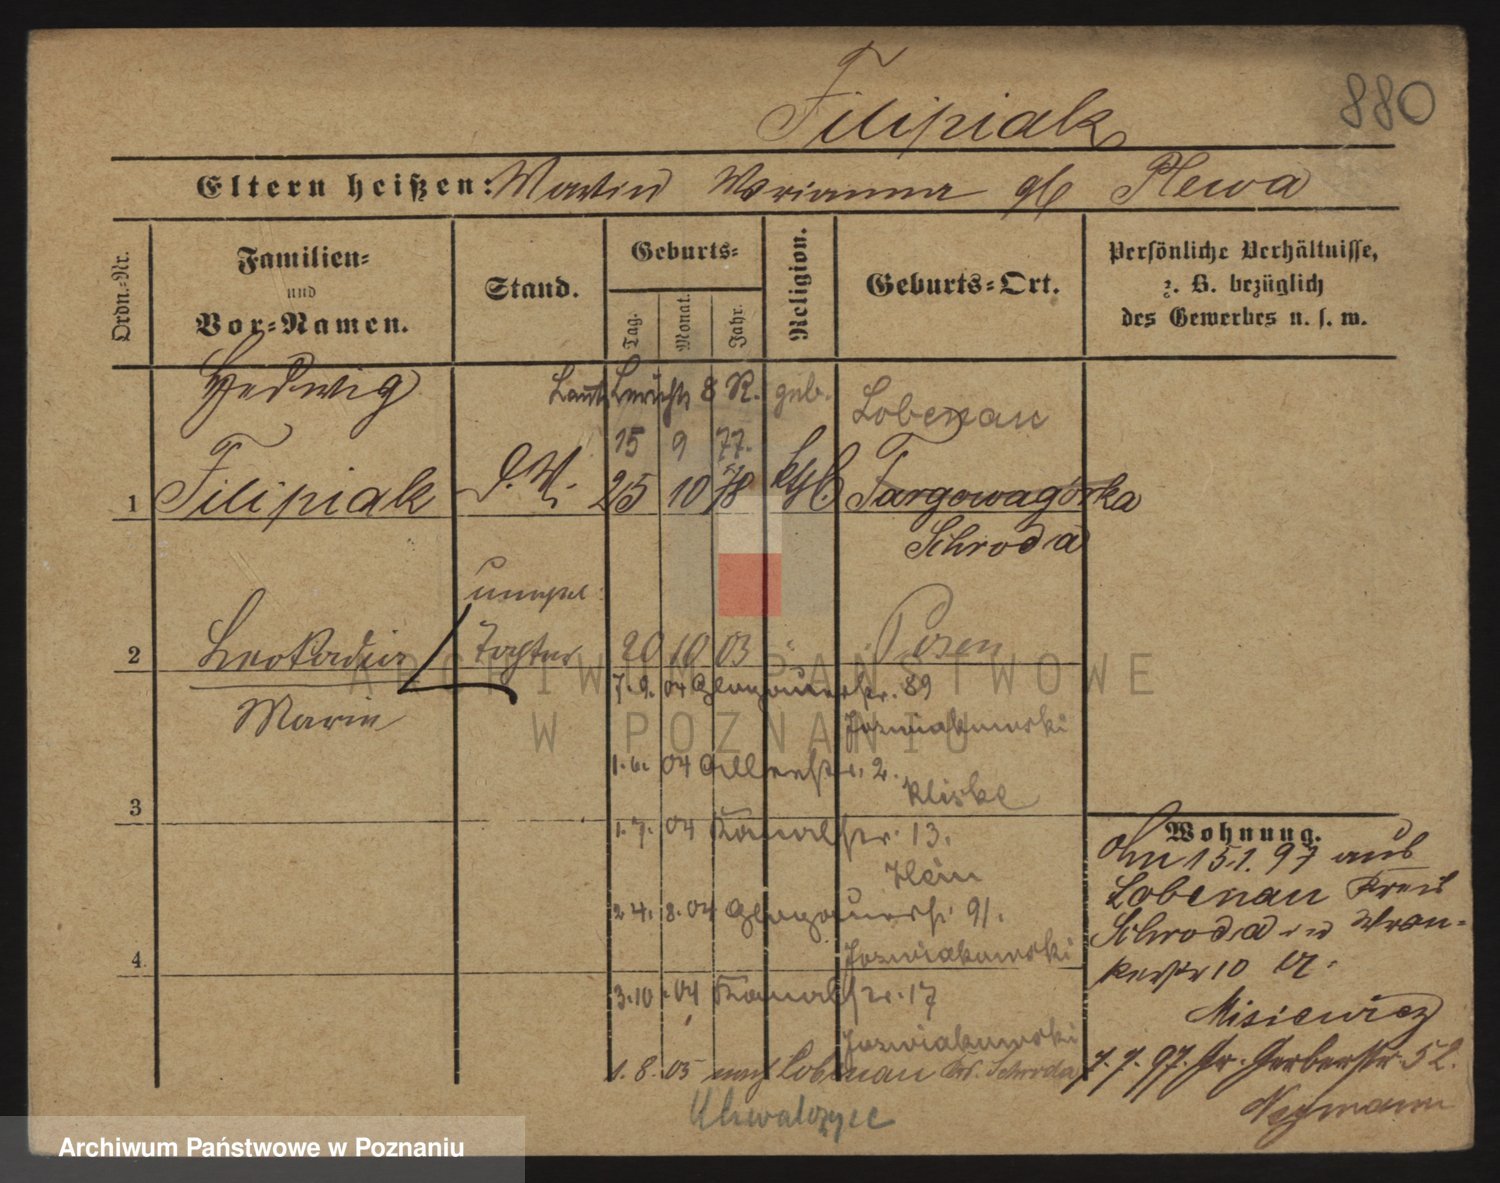 Filipiak
880
Eltern heißen: Martin Marianna gb Plewa
Ordn.-Nr.
Familien-
und
Vor-Namen.
Stand.
Geburts-
Tag.
Monat.
Jahr.
Religion.
Geburts-Ort.
Persönliche Verhältnisse,
z. B. bezüglich
des Gewerbes u. s. w.
Hedwig
Laut Bericht 8 R. geb.
Lobenau
15 9 77.
1 Filipiak d. M. 25 10 78 kth. Targowagorka
Schroda
unehel
2 Leokadia Tochter 20 10 03 " Posen
Marie
7. 9. 04 Glogauerstr. 89
Jozwiakowski
1. 6. 04 str. 2.
Kliske
3
1. 7. 04 Kanalstr. 13.
Hein
24. 8. 04 Glogauerstr 91.
Jozwiakowski
4
3. 10. 04 Kanalstr. 17
Jozwiakowski
1. 8. 05 nach Lobenau Krs. Schroda
Chwalczyce
Wohnung.
Am 15.1.97 aus
Lobenau Kreis
Schroda
10
Misiewicz
7. 7. 97. Gr. Gerberstr 52.
Neymann
ARCHIWUM PAŃSTWOWE
W POZNANIU
Archiwum Państwowe w Poznaniu